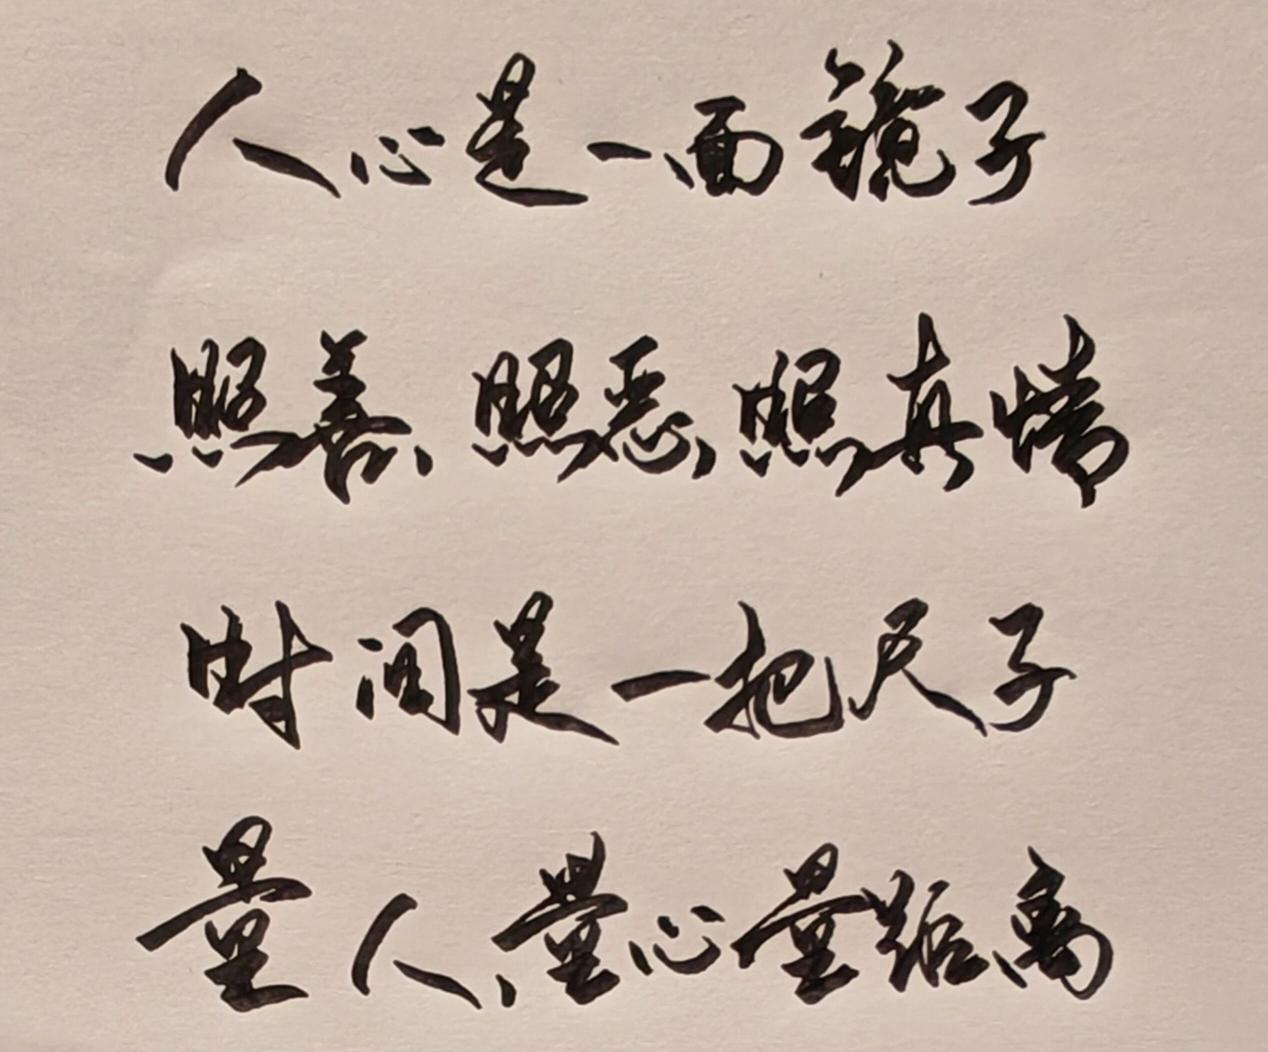 人心是一面镜子
照善、照恶、照真情
时间是一把尺子
量人、量心量距离